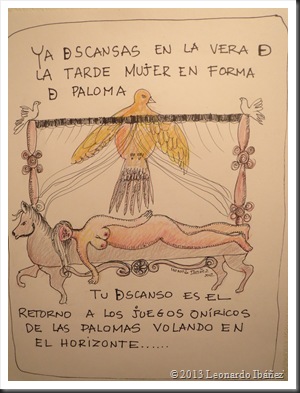 YA DSCANSAS EN LA VERA D
LA TARDE MUJER EN FORMA
D PALOMA
TU DSCANSO ES EL
RETORNO A LOS JUEGOS ONÍRICOS
DE LAS PALOMAS VOLANDO EN
EL HORIZONTE......
© 2013 Leonardo Ibáñez